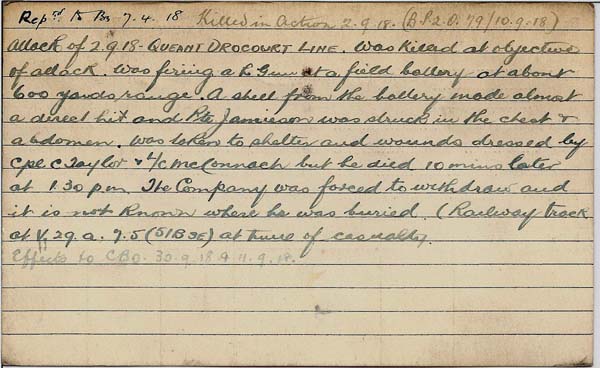 Rep'd to Bn 7.4.18 Killed in Action 2.9.18. (B.S.2.O. 79/10.9.18)
Attack of 2.9.18 - QUEANT DROCOURT LINE. Was killed at objective
of attack. Was firing a L Gun at a field battery at about
600 yards range. A shell from the battery made almost
a direct hit and Pte Jamieson was struck in the chest &
abdomen. Was taken to shelter and wounds dressed by
Cpl C Taylor & L/C McConnach but he died 10 mins later
at 1.30 p.m. The Company was forced to withdraw and
it is not known where he was buried. (Railway track
at V.29.a.7.5 (51B SE) at time of casualty.
Effects to CBO. 30.9.18 & 11.9.18.